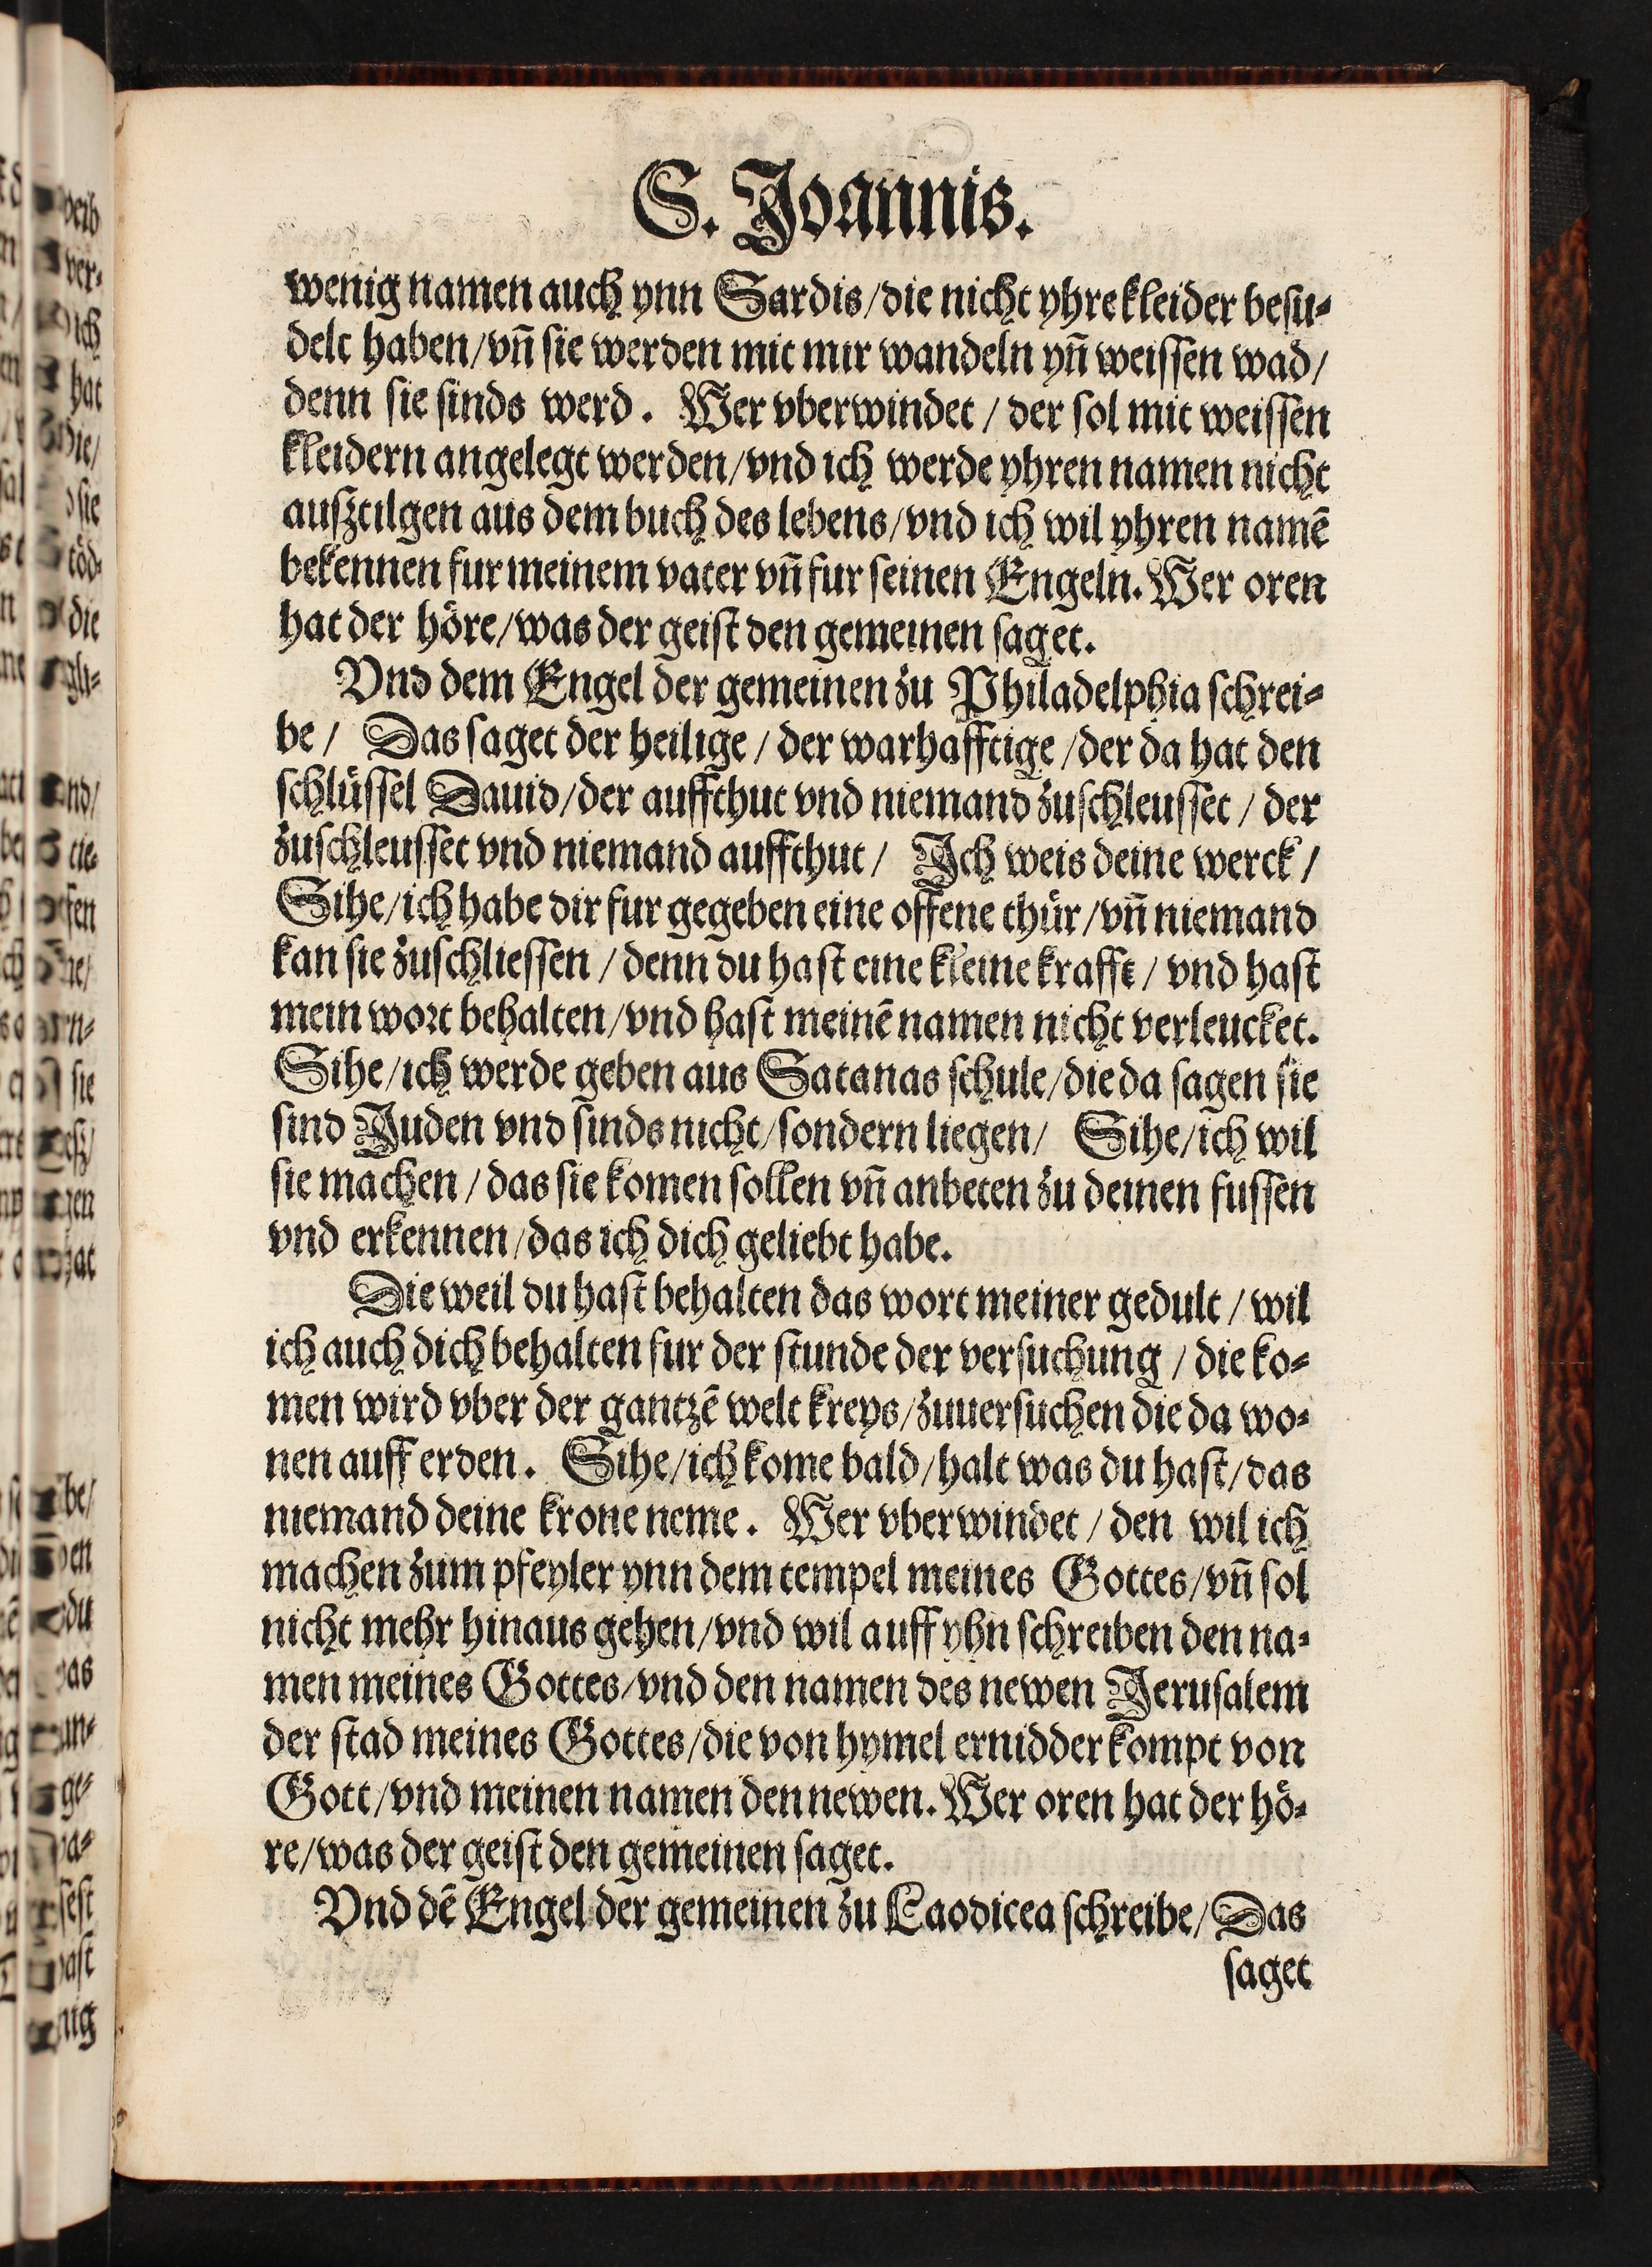 S. Joannis.
wenig namen auch ynn Sardis/die nicht yhre kleider besu⸗
delt haben/vn̄ sie werden mit mir wandeln yn̄ weissen wad/
denn sie sinds werd. Wer vberwindet / der sol mit weissen
kleidern angelegt werden/vnd ich werde yhren namen nicht
ausztilgen aus dem buch des lebens/vnd ich wil yhren namē
bekennen fur meinem vater vn̄ fur seinen Engeln. Wer oren
hat der höre/was der geist den gemeinen saget.
Vnd dem Engel der gemeinen zu Philadelphia schrei⸗
be / Das saget der heilige / der warhafftige /der da hat den
schlüssel Dauid/der auffthut vnd niemand zuschleusset / der
zuschleusset vnd niemand auffthut / Ich weis deine werck /
Sihe/ich habe dir fur gegeben eine offene thür/vn̄ niemand
kan sie zuschliessen / denn du hast eine kleine krafft / vnd hast
mein wort behalten/vnd hast meinē namen nicht verleucket.
Sihe/ich werde geben aus Satanas schule/die da sagen sie
sind Juden vnd sinds nicht/sondern liegen/ Sihe/ich wil
sie machen / das sie komen sollen vn̄ anbeten zu deinen fussen
vnd erkennen/das ich dich geliebt habe.
Die weil du hast behalten das wort meiner gedult / wil
ich auch dich behalten fur der stunde der versuchung / die ko⸗
men wird vber der gantzē welt kreys/zuuersuchen die da wo⸗
nen auff erden. Sihe/ich kome bald/halt was du hast/das
niemand deine krone neme. Wer vberwindet / den wil ich
machen zum pfeyler ynn dem tempel meines Gottes/vn̄ sol
nicht mehr hinaus gehen/vnd wil auff yhn schreiben den na⸗
men meines Gottes/vnd den namen des newen Jerusalem
der stad meines Gottes/die von hymel ernidder kompt von
Gott/vnd meinen namen den newen. Wer oren hat der hö⸗
re/was der geist den gemeinen saget.
Vnd dē Engel der gemeinen zu Laodicea schreibe/Das
saget